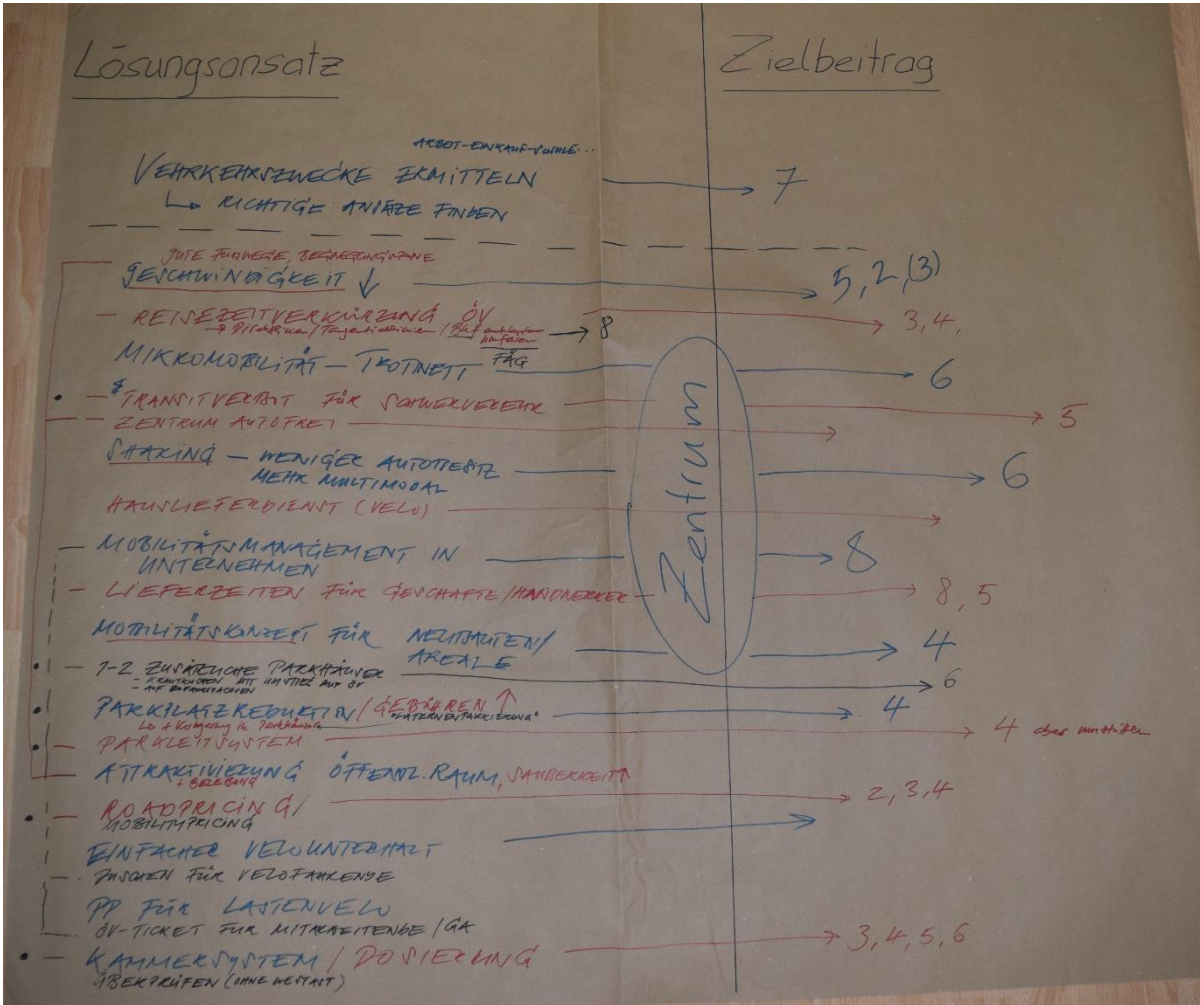 Lösungsansatz
Zielbeitrag
ARBEIT-EINKAUF-SCHULE...
VEHRKEHRSZWECKE ERMITTELN 7
↳ RICHTIGE ANSÄTZE FINDEN
GUTE FUSSWEGE,
GESCHWINDIGKEIT ↓ 5, 2, (3)
– REISEZEITVERKÜRZUNG ÖV 3, 4,
→ Direktlinien / Tangentiallinien / Bhf → 8
MIKROMOBILITÄT – TROTINETT FÄG 6
– TRANSITVERBOT FÜR SCHWERVERKEHR 5
– ZENTRUM AUTOFREI
SHARING – WENIGER AUTOBESITZ 6
MEHR MULTIMODAL
HAUSLIEFERDIENST (VELO)
Zentrum
– MOBILITÄTSMANAGEMENT IN 8
UNTERNEHMEN
– LIEFERZEITEN FÜR GESCHÄFTE/HANDWERKER 8, 5
MOBILITÄTSKONZEPT FÜR NEUBAUTEN/ 4
AREALE
– 1-2 ZUSÄTZLICHE PARKHÄUSER 6
MIT UMSTIEG AUF ÖV
– AUF
PARKPLATZREDUKTION/GEBÜHREN ↑ 4
"LATERNENPARKIERUNG"
in Parkhäuser
– PARKLEITSYSTEM 4
ATTRAKTIVIERUNG ÖFFENTL. RAUM, SAUBERKEIT
+ BELEBUNG
– ROADPRICING/ 2, 3, 4
MOBILITYPRICING
EINFACHER VELOUNTERHALT
DUSCHEN FÜR VELOFAHRENDE
PP FÜR LASTENVELO
ÖV-TICKET FÜR MITARBEITENDE / GA
– KAMMERSYSTEM / DOSIERUNG 3, 4, 5, 6
ÜBERPRÜFEN (OHNE WESTAST)